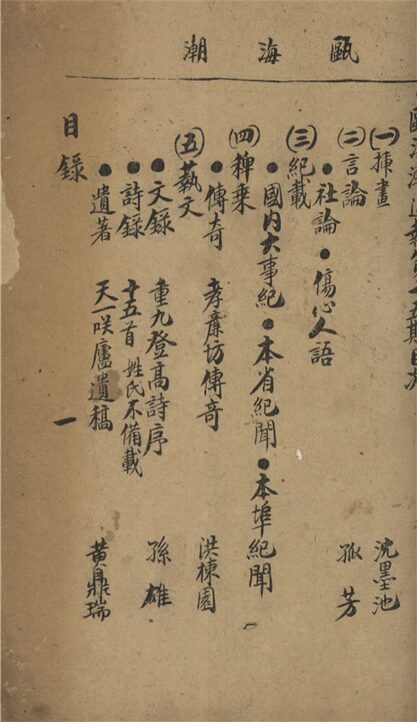 甌海潮
(一)插畫 沈墨池
(二)言論
●社論 ●傷心人語 孤芳
(三)紀載
●國内大事紀 ●本省紀聞 ●本埠紀聞
(四)稗乘
●傳奇 孝廉坊傳奇 洪棟園
(五)藝文
●文録 重九登高詩序 孫雄
●詩録 十五首 姓氏不備載
●遺著 天一笑廬遺稿 黃鼎瑞
目録 一